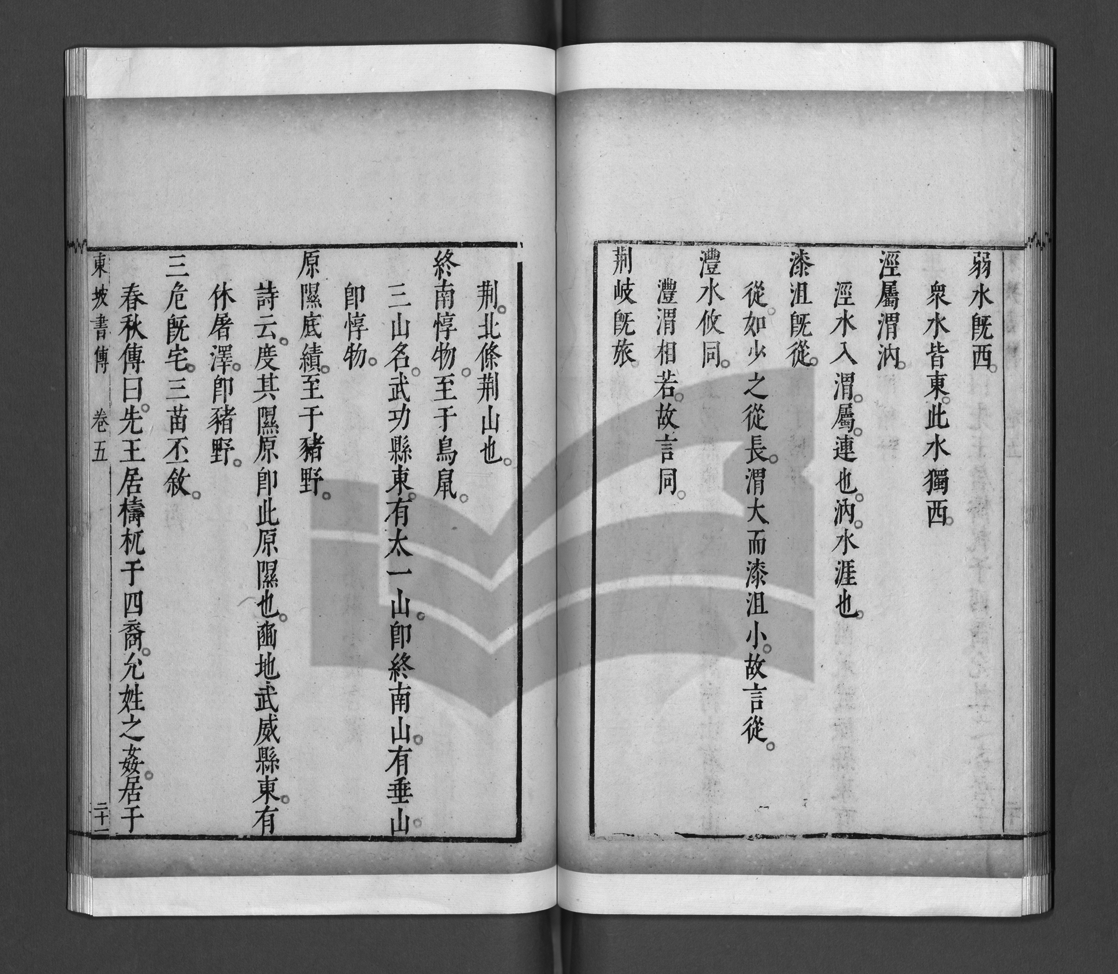 弱水旣西。
衆水皆東。此水獨西。
涇屬渭汭。
涇水入渭。屬。連也。汭。水涯也。
漆沮旣從。
從。如少之從長。渭大而漆沮小。故言從。
灃水攸同。
灃渭相若。故言同。
荆岐旣旅。
荆。北條荆山也。
終南惇物。至于鳥鼠。
三山名。武功縣東。有太一山。卽終南山。有垂山。
卽惇物。
原隰底績。至于豬野。
詩云。度其隰原。卽此原隰也。豳地武威縣東。有
休屠澤。卽豬野。
三危旣宅。三苗丕敘。
春秋傳曰。先王居檮杌于四裔。允姓之姦。居于
東坡書傳 卷五 二十一